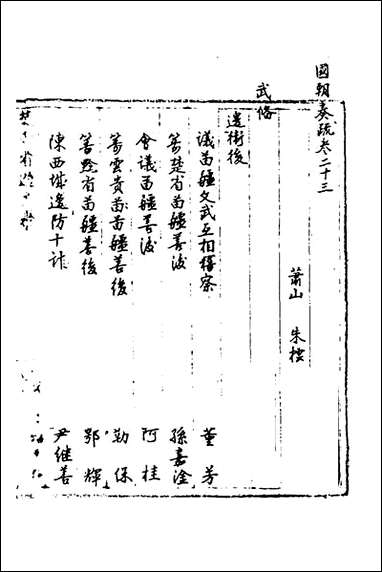 國朝奏疏卷二十三
蕭山 朱橒
武備
邊衛後
議苗疆文武互相稽察 董芳
籌楚省苗疆善後 孫嘉淦
會議苗疆善後 阿桂
籌雲貴苗疆善後 勒保
籌黔省苗疆善後 鄂輝
陳西陲邊防十計 尹繼善